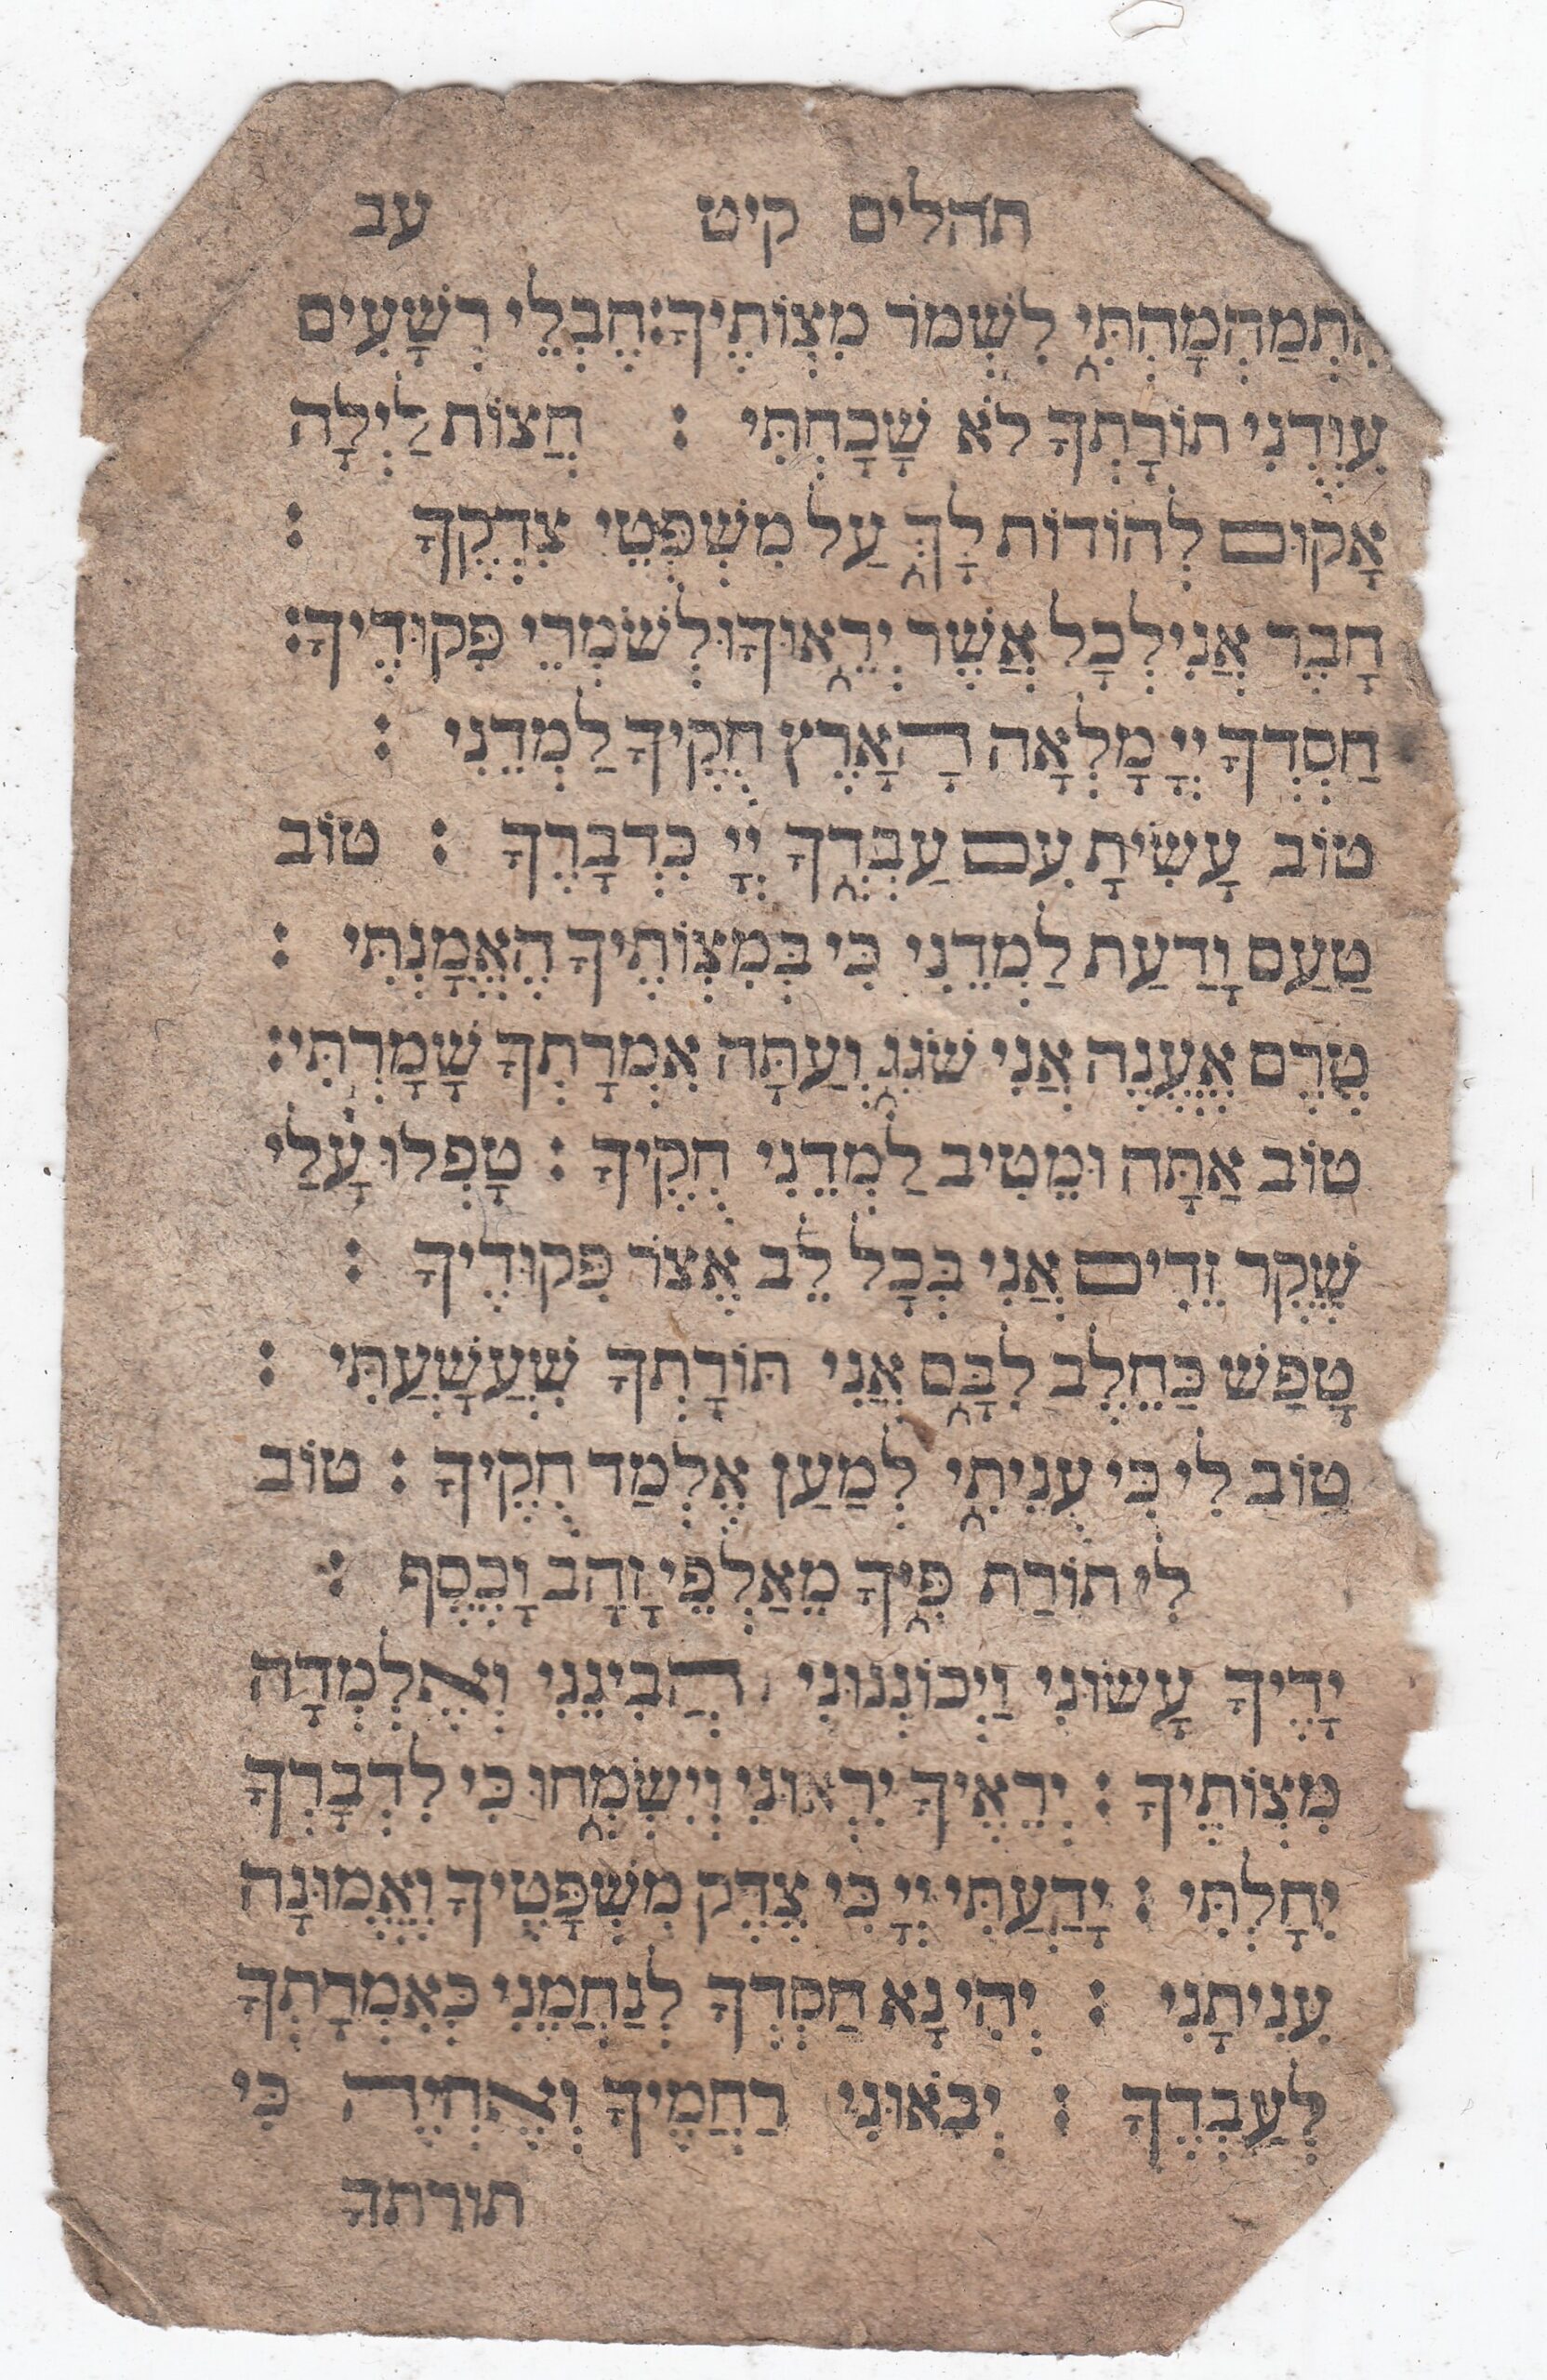 תהלים קיט עב
הִתְמַהְמָהְתִּי לִשְׁמֹר מִצְוֹתֶיךָ: חֶבְלֵי רְשָׁעִים
עִוְּדֻנִי תוֹרָתְךָ לֹא שָׁכָחְתִּי : חֲצוֹת לַיְלָה
אָקוּם לְהוֹדוֹת לָךְ עַל מִשְׁפְּטֵי צִדְקֶךָ :
חָבֵר אָנִי לְכָל אֲשֶׁר יְרֵאוּךָ וּלְשֹׁמְרֵי פִּקּוּדֶיךָ:
חַסְדְּךָ יְיָ מָלְאָה הָאָרֶץ חֻקֶּיךָ לַמְּדֵנִי :
טוֹב עָשִׂיתָ עִם עַבְדְּךָ יְיָ כִּדְבָרֶךָ : טוֹב
טַעַם וָדַעַת לַמְּדֵנִי כִּי בְמִצְוֹתֶיךָ הֶאֱמָנְתִּי :
טֶרֶם אֶעֱנֶה אֲנִי שֹׁגֵג וְעַתָּה אִמְרָתְךָ שָׁמָרְתִּי:
טוֹב אַתָּה וּמֵטִיב לַמְּדֵנִי חֻקֶּיךָ : טָפְלוּ עָלַי
שֶׁקֶר זֵדִים אֲנִי בְּכָל לֵב אֶצֹּר פִּקּוּדֶיךָ :
טָפַשׁ כַּחֵלֶב לִבָּם אֲנִי תּוֹרָתְךָ שִׁעֲשָׁעְתִּי :
טוֹב לִי כִּי עֻנֵּיתִי לְמַעַן אֶלְמַד חֻקֶּיךָ : טוֹב
לִי תוֹרַת פִּיךָ מֵאַלְפֵי זָהָב וָכָסֶף :
יָדֶיךָ עָשׂוּנִי וַיְכוֹנְנוּנִי הֲבִינֵנִי וְאֶלְמְדָה
מִצְוֹתֶיךָ : יְרֵאֶיךָ יִרְאוּנִי וְיִשְׂמָחוּ כִּי לִדְבָרְךָ
יִחָלְתִּי : יָדַעְתִּי יְיָ כִּי צֶדֶק מִשְׁפָּטֶיךָ וֶאֱמוּנָה
עִנִּיתָנִי : יְהִי נָא חַסְדְּךָ לְנַחֲמֵנִי כְּאִמְרָתְךָ
לְעַבְדֶּךָ : יְבֹאוּנִי רַחֲמֶיךָ וְאֶחְיֶה כִּי
תורתך